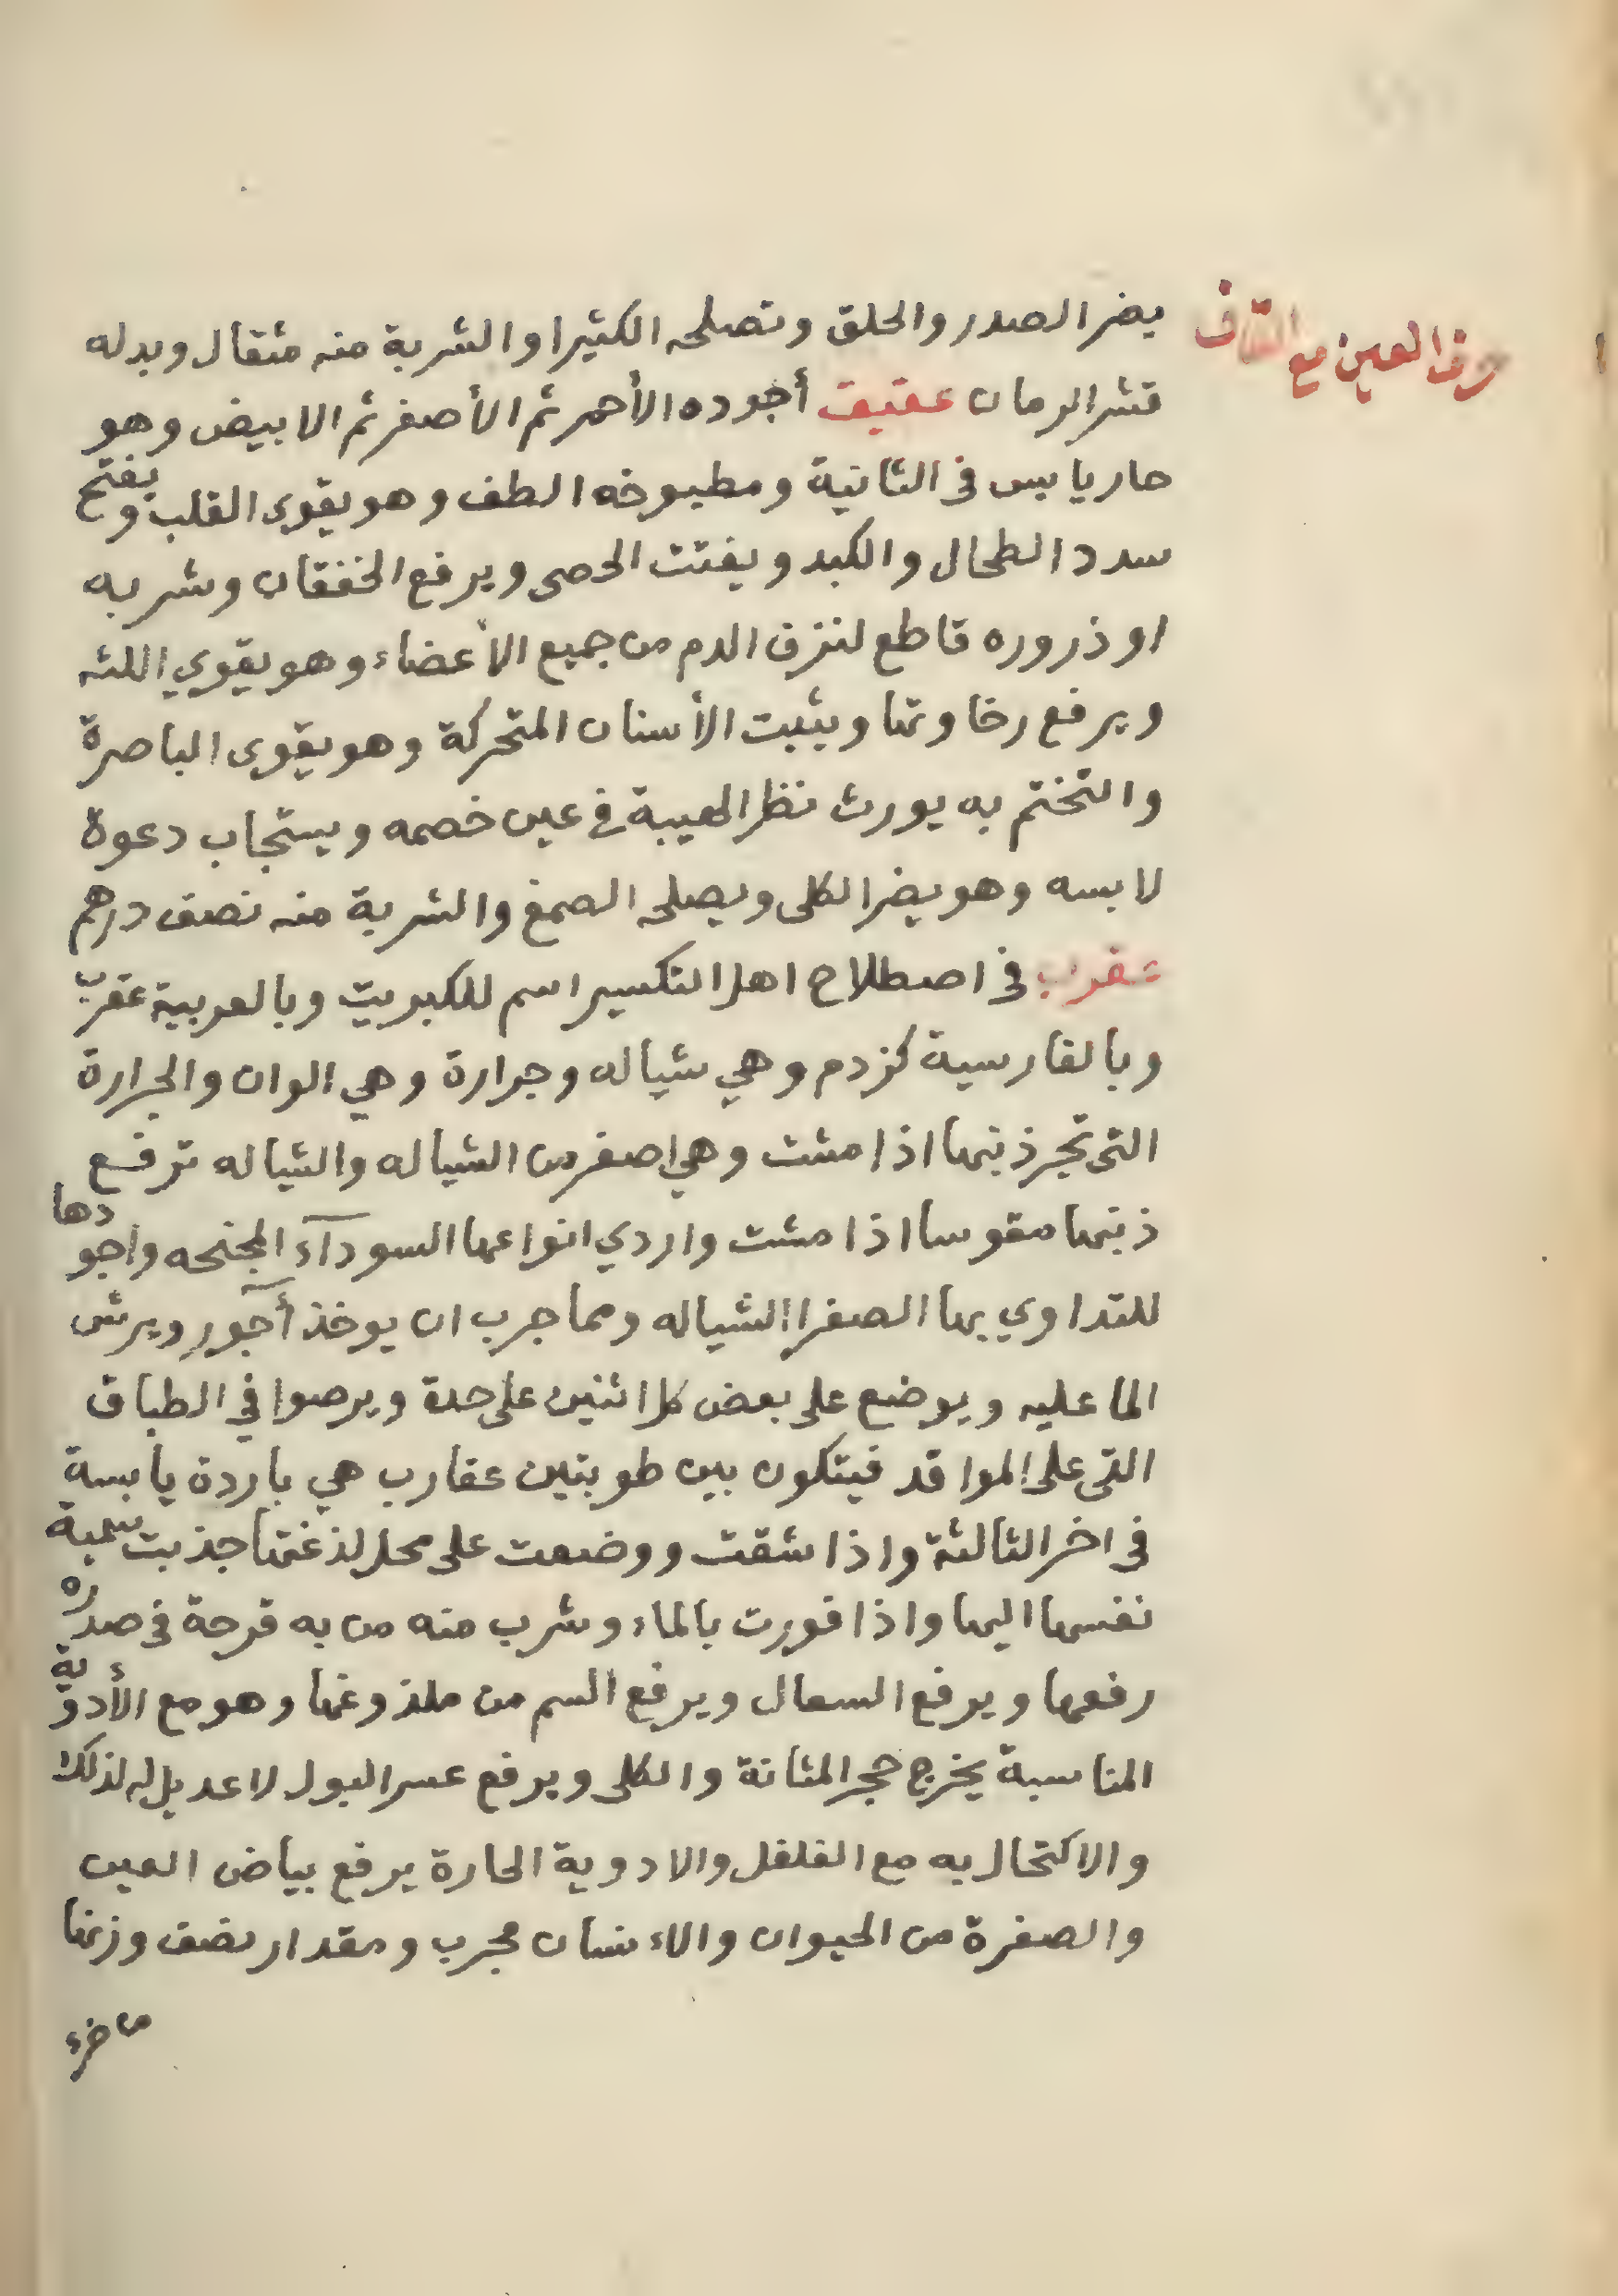 حرف العين مع القاف
يضر الصدر والحلق وتصلحه الكثيرا والشربة منه مثقال وبدله
قشر الرمان عقيق أجوده الأحمر ثم الأصفر ثم الابيض وهو
حار يابس فى الثانية ومطبوخه الطف وهو يقوى القلب ويفتح
سدد الطحال والكبد ويفتت الحصى ويرفع الخفقان وشربه
او ذروره قاطع لنزف الدم من جميع الأعضاء وهو يقوي اللثه
ويرفع رخاوتها ويثبت الأسنان المتحركة وهو يقوى الباصرة
والتختم به يورث نظر الهيبة في عين خصمه ويستجاب دعوة
لابسه وهو يضر الكلى ويصلحه الصمغ والشربة منه نصف درهم
عقرب فى اصطلاح اهل التكسير اسم للكبريت وبالعربية عقرب
وبالفارسية كزدم وهي شياله وجرارة وهي الوان والجرارة
التى تجر ذنبها اذا مشت وهي اصغر من الشياله والشياله ترفع
ذنبها مقوسا اذا مشت واردي انواعها السودآء المجنحه واجودها
للتداوي بها الصفرا الشياله ومما جرب ان يوخذ أجور ويرش
الما عليه ويوضع على بعض كل اثنين على حدة ويرصوا في الطباق
التى على المواقد فيتكون بين طوبتين عقارب هي باردة يابسة
فى اخر الثالثة واذا شقت ووضعت على محل لذغتها جذبت سمية
نفسها اليها واذا فورت بالماء وشرب منه من به قرحة فى صدره
رفعها ويرفع السعال ويرفع السم من ملذوغها وهو مع الأدوية
المناسبة يخرج حجر المثانة والكلى ويرفع عسر البول لا عديل له لذلك
والاكتحال به مع الفلفل والادوية الحارة يرفع بياض العين
والصفرة من الحيوان والاءنسان مجرب ومقدار نصف وزنها
من خرء